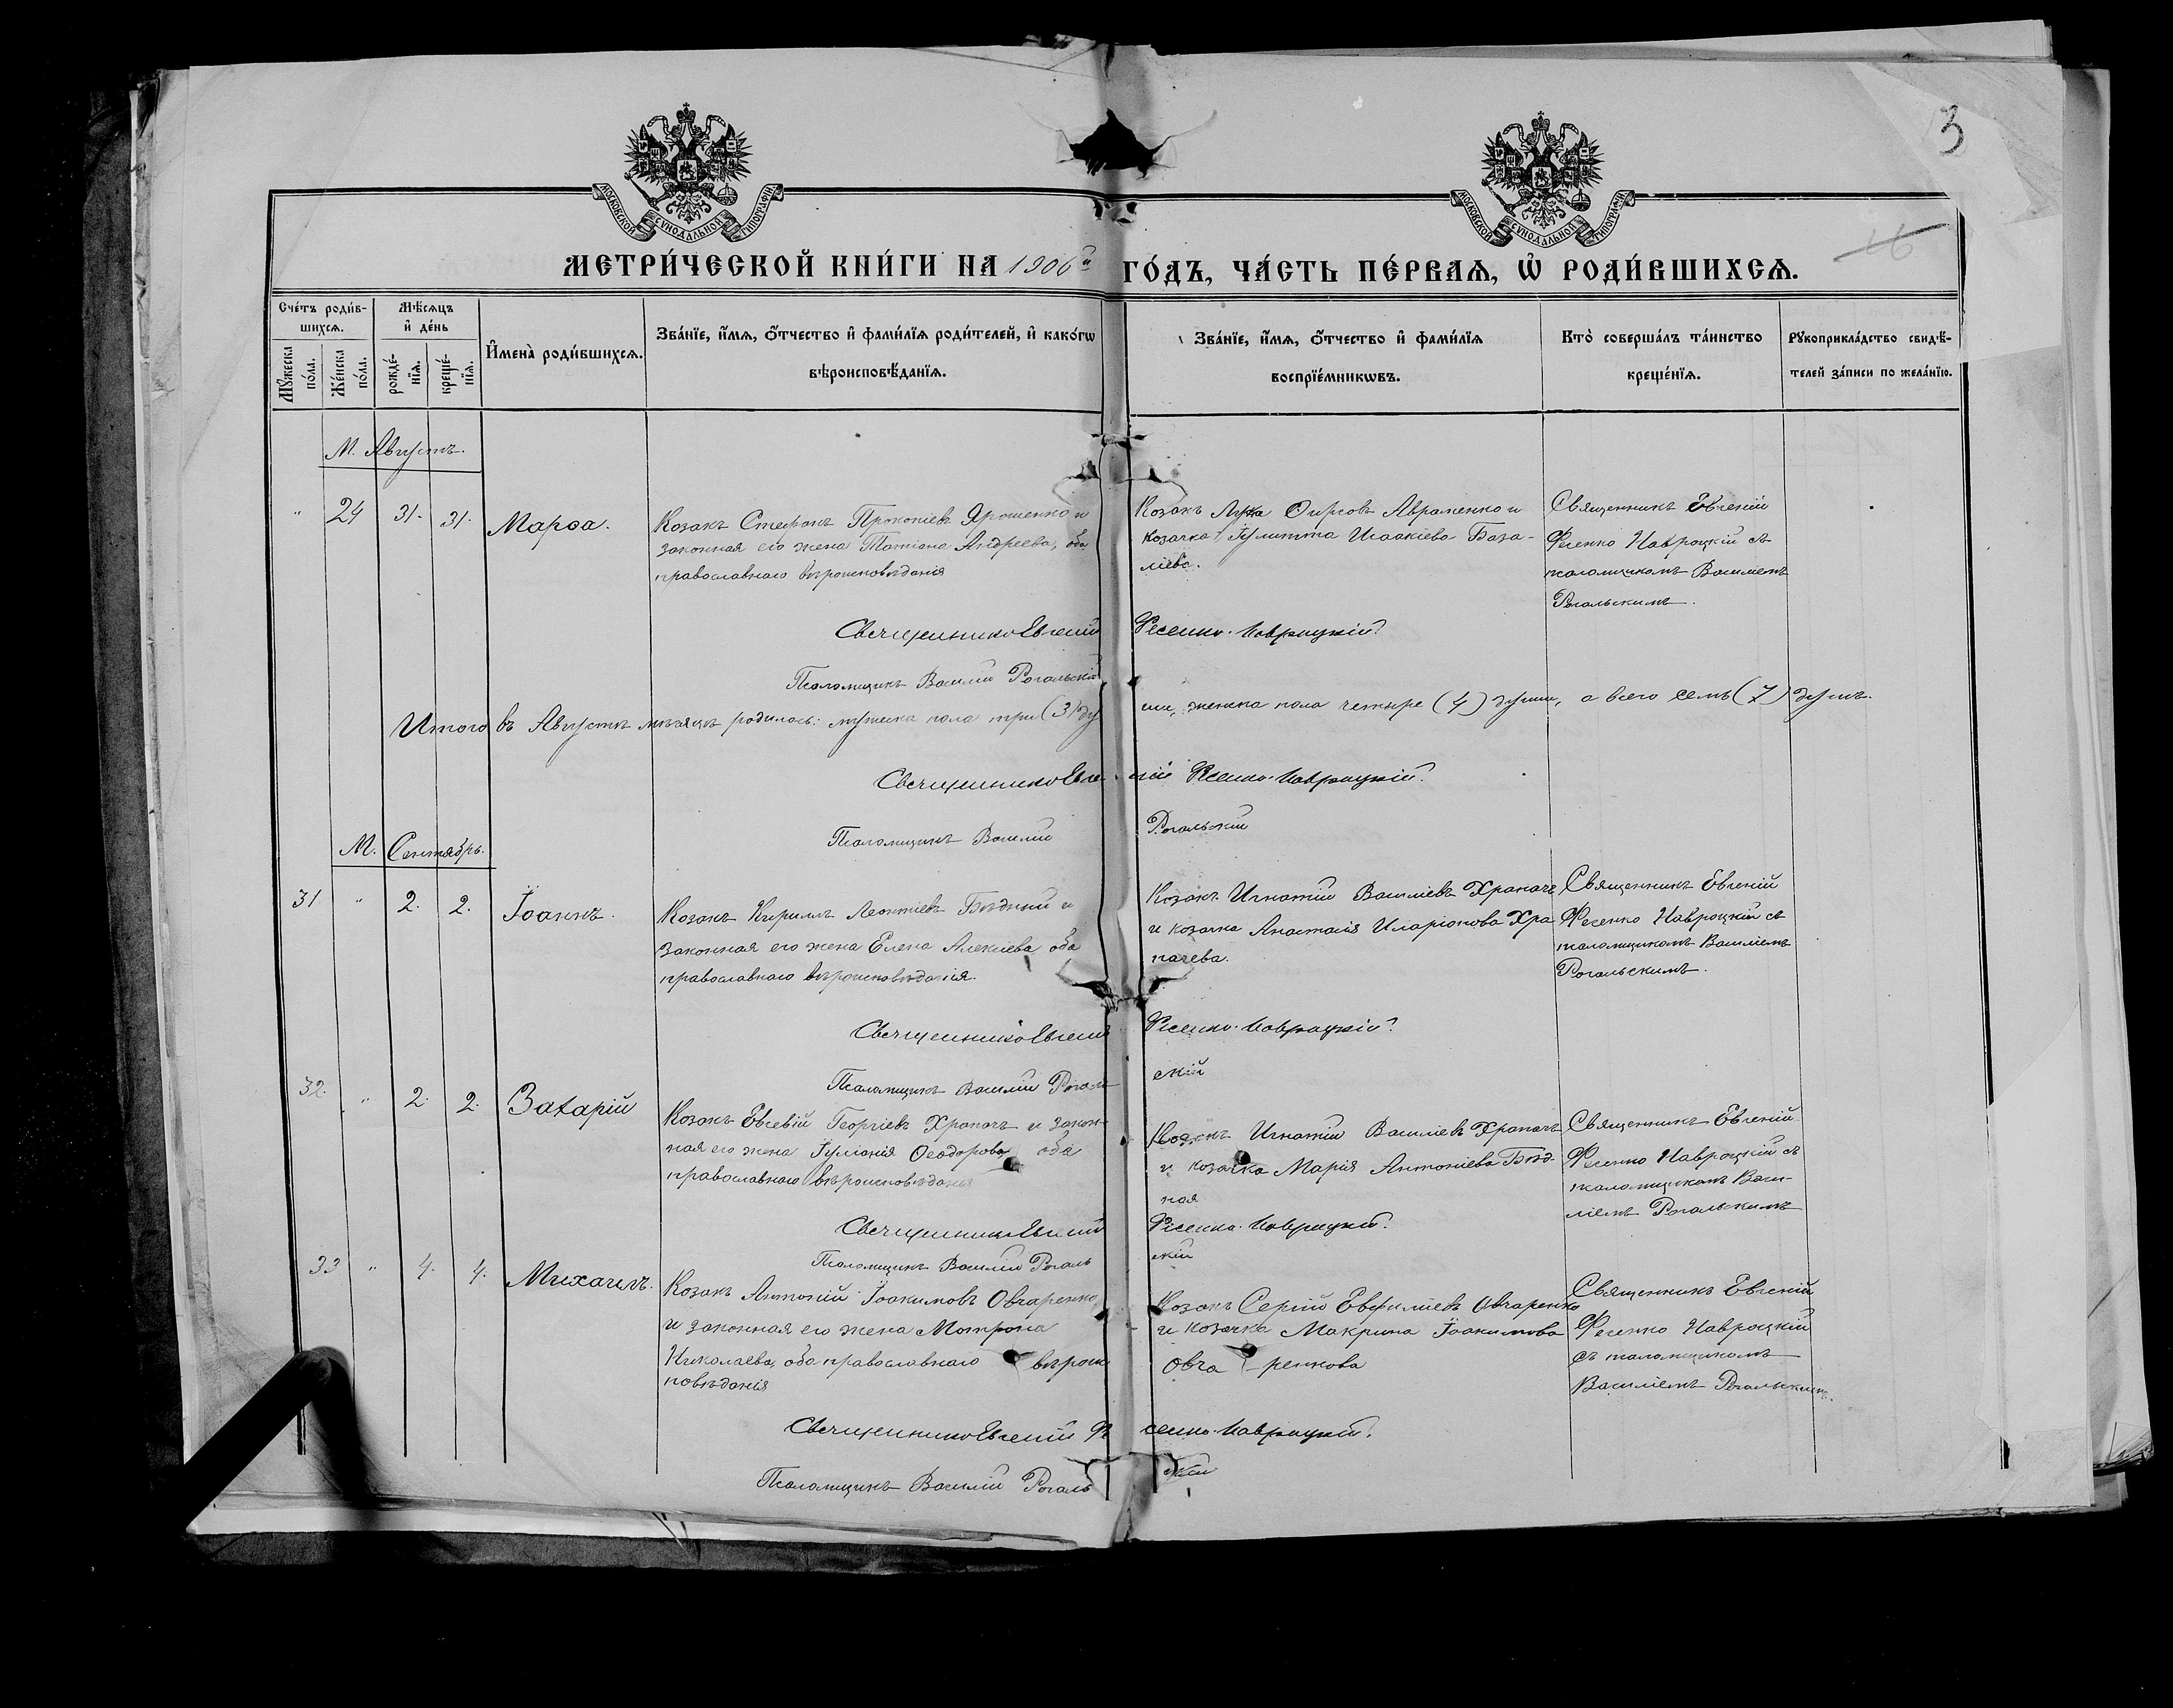 3
МОСКОВСКОЙ СѴНОДАЛЬНОЙ ТИПОГРАФІИ
МОСКОВСКОЙ СѴНОДАЛЬНОЙ ТИПОГРАФІИ
16
МЕТРИ́ЧЕСКОЙ КНИ́ГИ НА 1906й ГО́ДЪ, ЧА́СТЬ ПЕ́РВАѦ, Ѡ҆ РОДИ́ВШИХСѦ.
Сче́тъ роди́в-
шихсѧ.
Мѣ́сѧцъ
и҆ де́нь
Мꙋ́жеска
по́ла.
Же́нска
по́ла.
рожде́-
нїѧ.
креще́-
нїѧ.
И҆мена̀ роди́вшихсѧ.
Зва́нїе, и҆́мѧ, ѻ҆́тчество и҆ фами́лїѧ роди́телей, и҆ како́гѡ
вѣроисповѣ́данїѧ.
Зва́нїе, и҆́мѧ, ѻ҆́тчество и҆ фами́лїѧ
воспрїе́мникѡвъ.
Кто̀ соверша́лъ та́инство
креще́нїѧ.
Рꙋкоприкла́дство свидѣ́-
телей за́писи по жела́нїю.
М. Августъ.
" 24 31. 31. Марѳа.
Козакъ Стефанъ Прокопіевъ Ярошенко и
законная его жена Татіана Андреева, оба
православнаго вѣроисповѣданія
Козакъ Лука Ѳирсовъ Авраменко и
козачка Іулитта Исаакіева База-
лієва.
Священникъ Евгеній
Фесенко Навроцкій съ
псаломщикомъ Василіемъ
Рогальскимъ.
Священникъ Евгеній Фесенко-Навроцкій
Псаломщикъ Василій Рогальскій
Итого въ Августѣ мѣсяцѣ родилось: мужска пола три (3) ду ши, женска пола четыре (4) души, а всего семь (7) душъ.
Священникъ Евгеній Фесенко-Навроцкій.
Псаломщикъ Василій Рогальскій
М. Сентябрь.
31 " 2. 2. Іоаннъ.
Козакъ Кириллъ Леонтіевъ Бѣдный и
законная его жена Елена Алексіева оба
православнаго вѣроисповѣданія.
Козакъ Игнатій Василіевъ Храпачъ
и козачка Анастасія Иларіонова Хра
пачева.
Священникъ Евгеній
Фесенко Навроцкій съ
псаломщикомъ Василіемъ
Рогальскимъ.
Священникъ Евгеній Фесенко-Навроцкій
Псаломщикъ Василій Рогаль скій
32. " 2. 2. Захарій
Козакъ Евсевій Георгіевъ Храпачъ и закон-
ная его жена Іуліанія Ѳеодорова оба
православнаго вѣроисповѣданія
Козакъ Игнатій Василіевъ Храпачъ
и козачка Марія Антоніева Бѣд-
ная
Священникъ Евгеній
Фесенко Навроцкій съ
псаломщикомъ Васи-
ліемъ Рогальскимъ
Священникъ Евгеній Фесенко-Навроцкій.
Псаломщикъ Василій Рогаль скій
33 " 4. 4. Михаилъ.
Козакъ Антоній Іоакимовъ Овчаренко,
и законная его жена Матрона
Николаева, оба православнаго вѣроис
повѣданія
Козакъ Сергій Евфиміевъ Овчаренко
и козачка Макрина Іоакимова
Овча ренкова
Священникъ Евгеній
Фесенко Навроцкій
съ псаломщикомъ
Василіемъ Рогальскимъ.
Священникъ Евгеній Фе сенко-Навроцкій.
Псаломщикъ Василій Рогаль скій